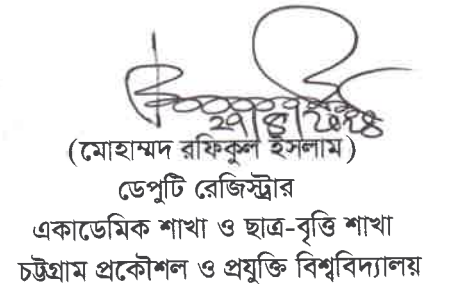 (মোহাম্মদ রফিকুল ইসলাম)
ডেপুটি রেজিস্ট্রার
একাডেমিক শাখা ও ছাত্র-বৃত্তি শাখা
চট্টগ্রাম প্রকৌশল ও প্রযুক্তি বিশ্ববিদ্যালয়